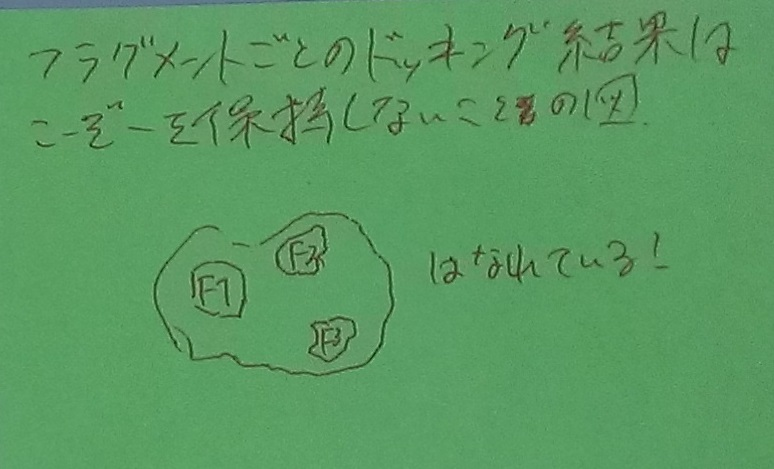 フラグメントごとのドッキング結果は
こーぞーを保持しないことの図
F2
F1 はなれている!
F3